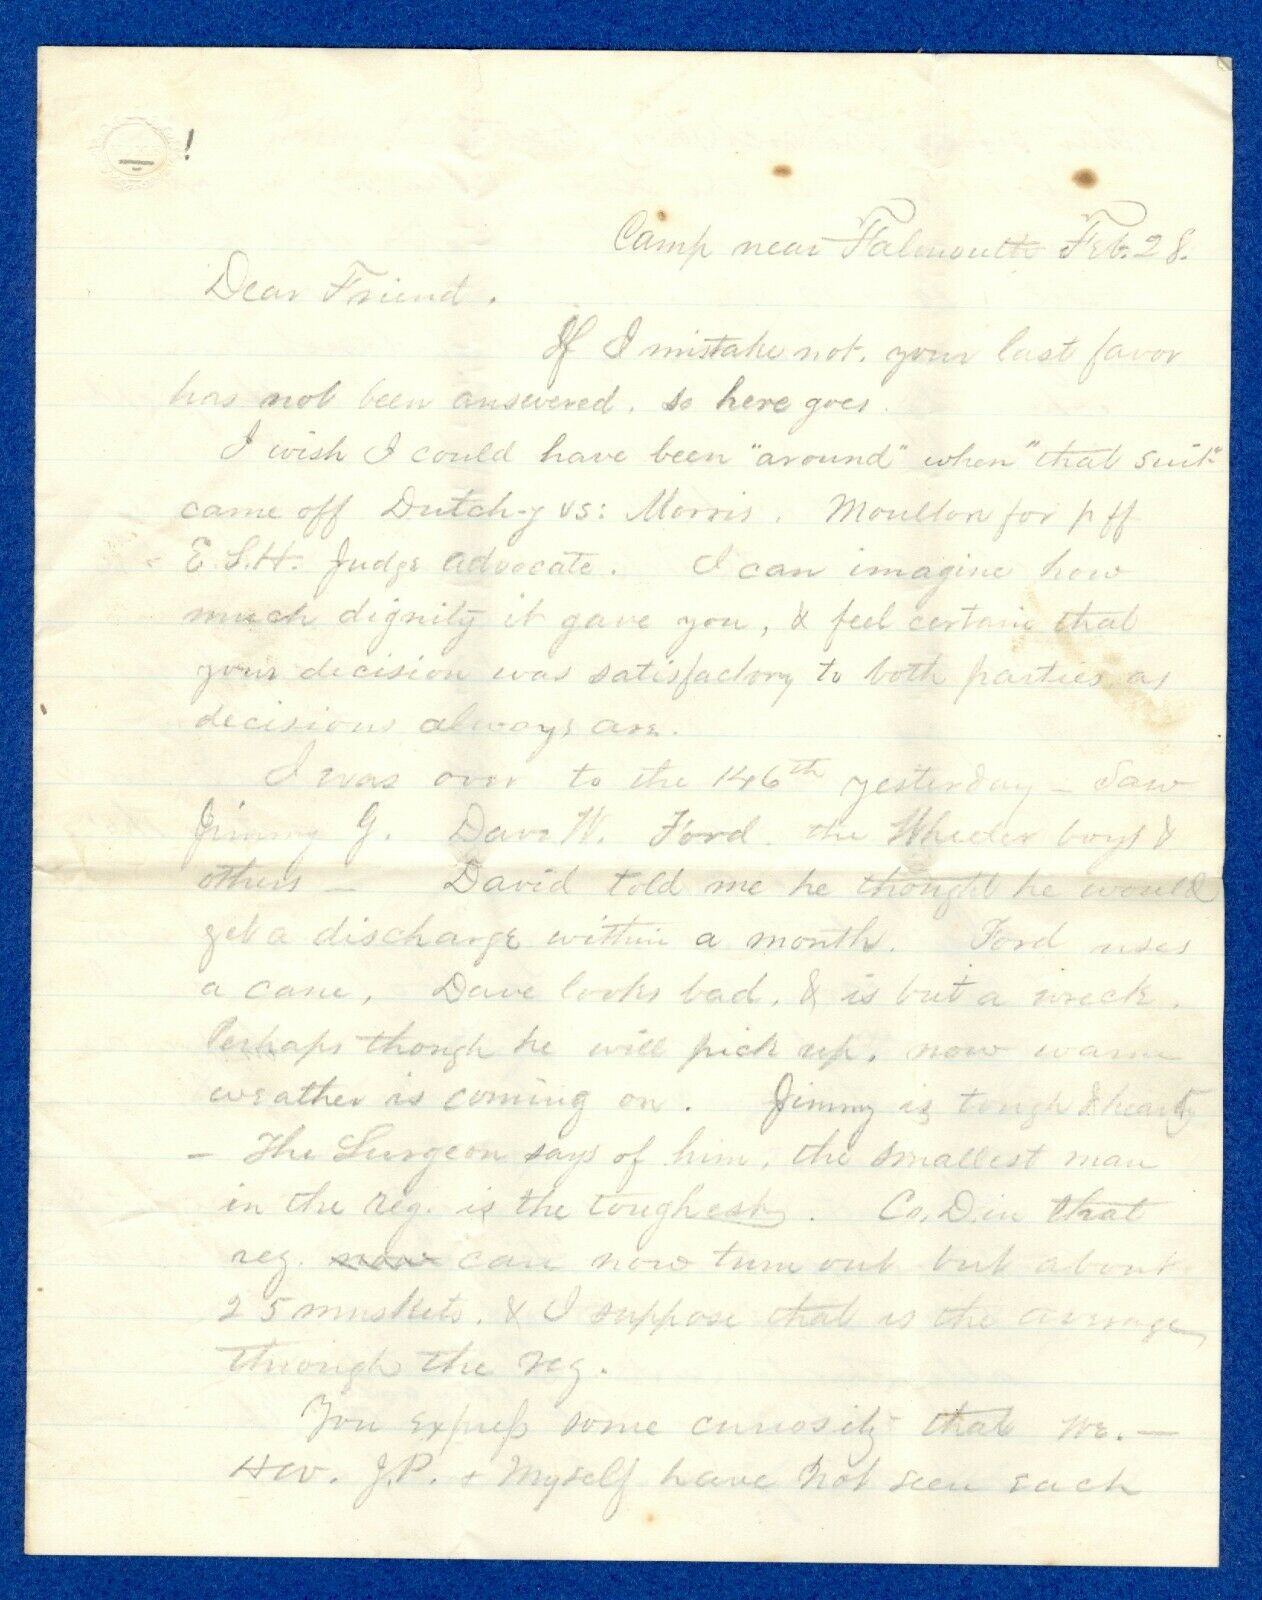 !
Camp near Falmouth Feb. 28.
Dear Friend.
If I mistake not, your last favor
has not been answered. so here goes.
I wish I could have been "around" when "that suit"
came off Dutch-y vs: Morris. Moulton for pff
E.S.H. Judge advocate. I can imagine how
much dignity it gave you, & feel certain that
your decision was satisfactory to both parties, as
decisions always are.
I was over to the 146th yesterday - Saw
Jimmy G. Dave W. Ford. the Wheeler boys &
others - David told me he thought he would
get a discharge within a month. Ford uses
a cane. Dave looks bad, & is but a wreck.
Perhaps though he will pick up, now warm
weather is coming on. Jimmy is tough & hearty
- The Surgeon says of him, the smallest man
in the reg. is the toughest. Co. D. in that
reg. now can now turn out but about
25 muskets, & I suppose that is the average
through the reg.
You express some curiosity that we. -
J.P. & Myself have not seen each